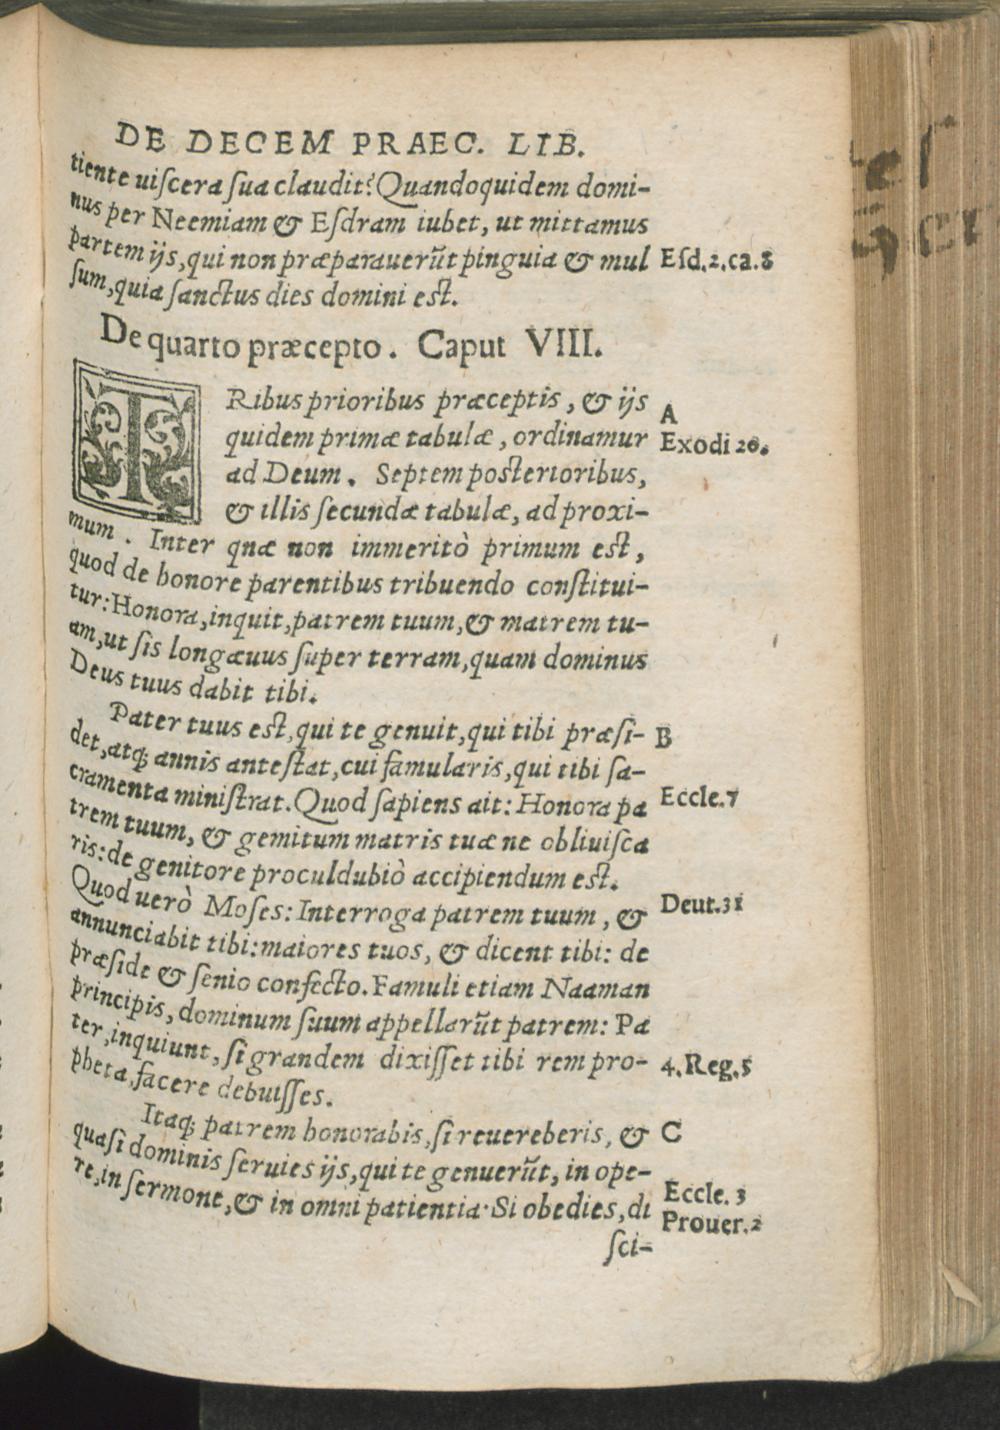 DE DECEM PRAEC. LIB.
tiente uiſcera ſua claudit? Quandoquidem domi-
nus per Neemiam & Eſdram iubet, ut mittamus
partem ijs, qui non præparauerūt pinguia & mul Eſd.2.ca.8
ſum, quia ſanctus dies domini est.
De quarto præcepto. Caput VIII.
TRibus prioribus præceptis, & ijs A
quidem primæ tabulæ, ordinamur Exodi 20.
ad Deum. Septem posterioribus,
& illis ſecundæ tabulæ, ad proxi-
mum. Inter qnæ non immeritò primum est,
quod de honore parentibus tribuendo conſtitui-
tur: Honora, inquit, patrem tuum, & matrem tu-
am, ut ſis longæuus ſuper terram, quam dominus
Deus tuus dabit tibi.
Pater tuus est, qui te genuit, qui tibi præſi- B
det, atq; annis anteſtat, cui famularis, qui tibi ſa-
cramenta miniſtrat. Quod ſapiens ait: Honora pa Eccle.7
trem tuum, & gemitum matris tuæ ne obliuiſca
ris: de genitore proculdubiò accipiendum est.
Quod uerò Moſes: Interroga patrem tuum, & Deut.31
annunciabit tibi: maiores tuos, & dicent tibi: de
præſide & ſenio confecto. Famuli etiam Naaman
principis, dominum ſuum appellarūt patrem: Pa
ter, inquiunt, ſi grandem dixiſſet tibi rem pro- 4.Reg.5
pheta, facere debuiſſes.
Itaq; patrem honorabis, ſi reuereberis, & C
quaſi dominis ſeruies ijs, qui te genuerūt, in ope-
re, in ſermone, & in omni patientia. Si obedies, di Eccle. 3
Prouer.2
ſci-